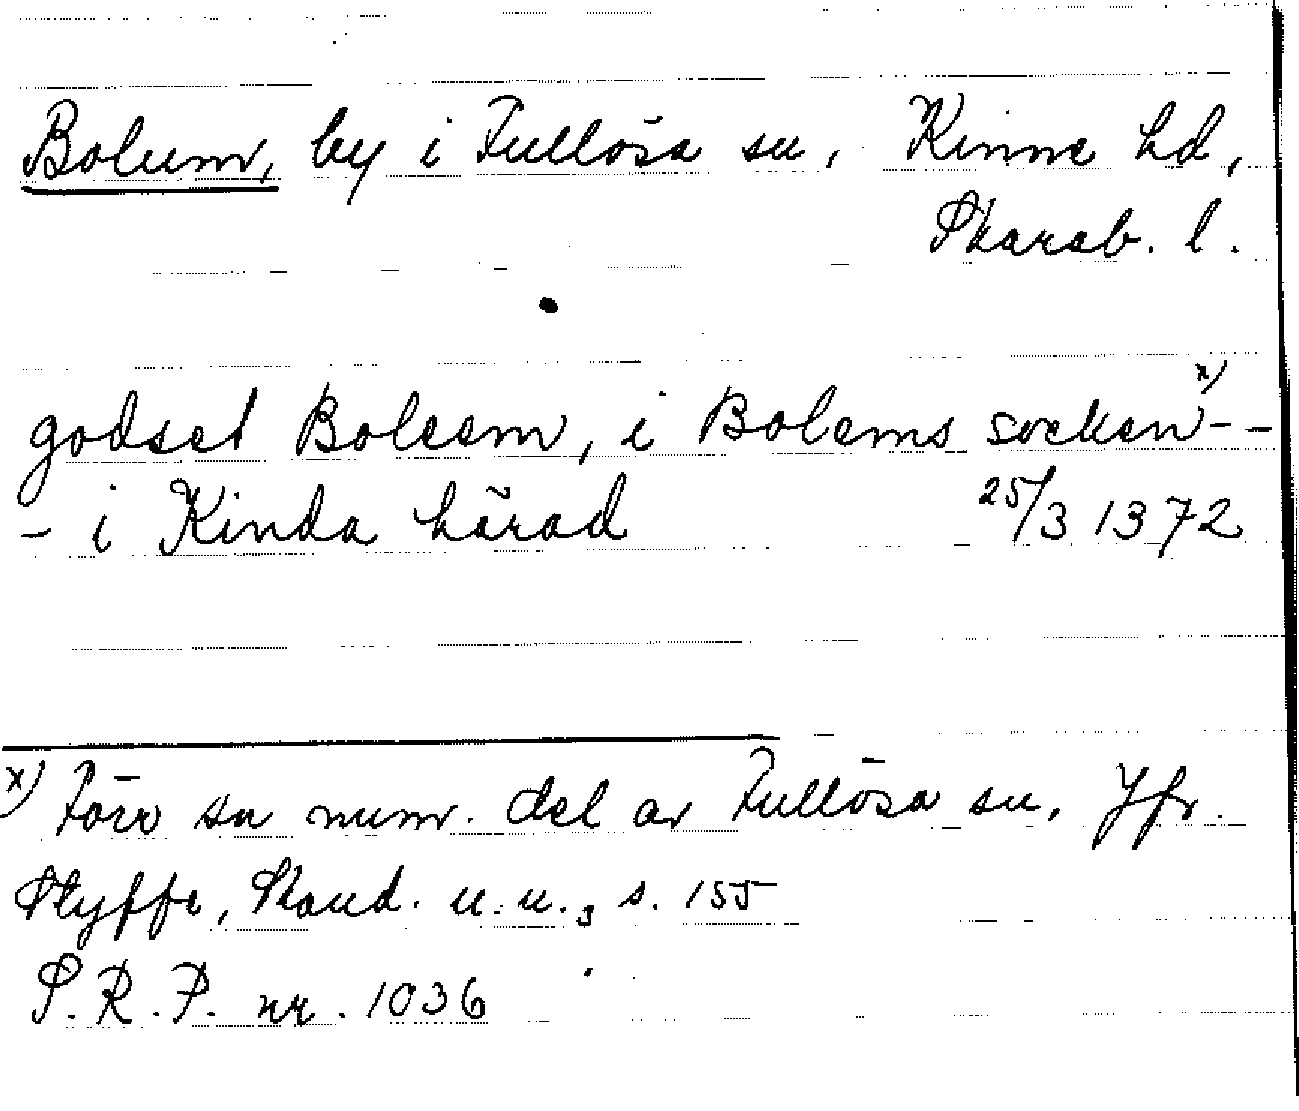 Bolum, by i Fullösa sn, Kinne hd,
Skarab. l.
godset Boleem, i Bolems socken x) - -
- i Kinda härad 25/3 1372
x) Förr sn numr. del av Fullösa sn. Jfr.
Styffe, Skand. u. u.3 s. 155
S.R.P. nr. 1036